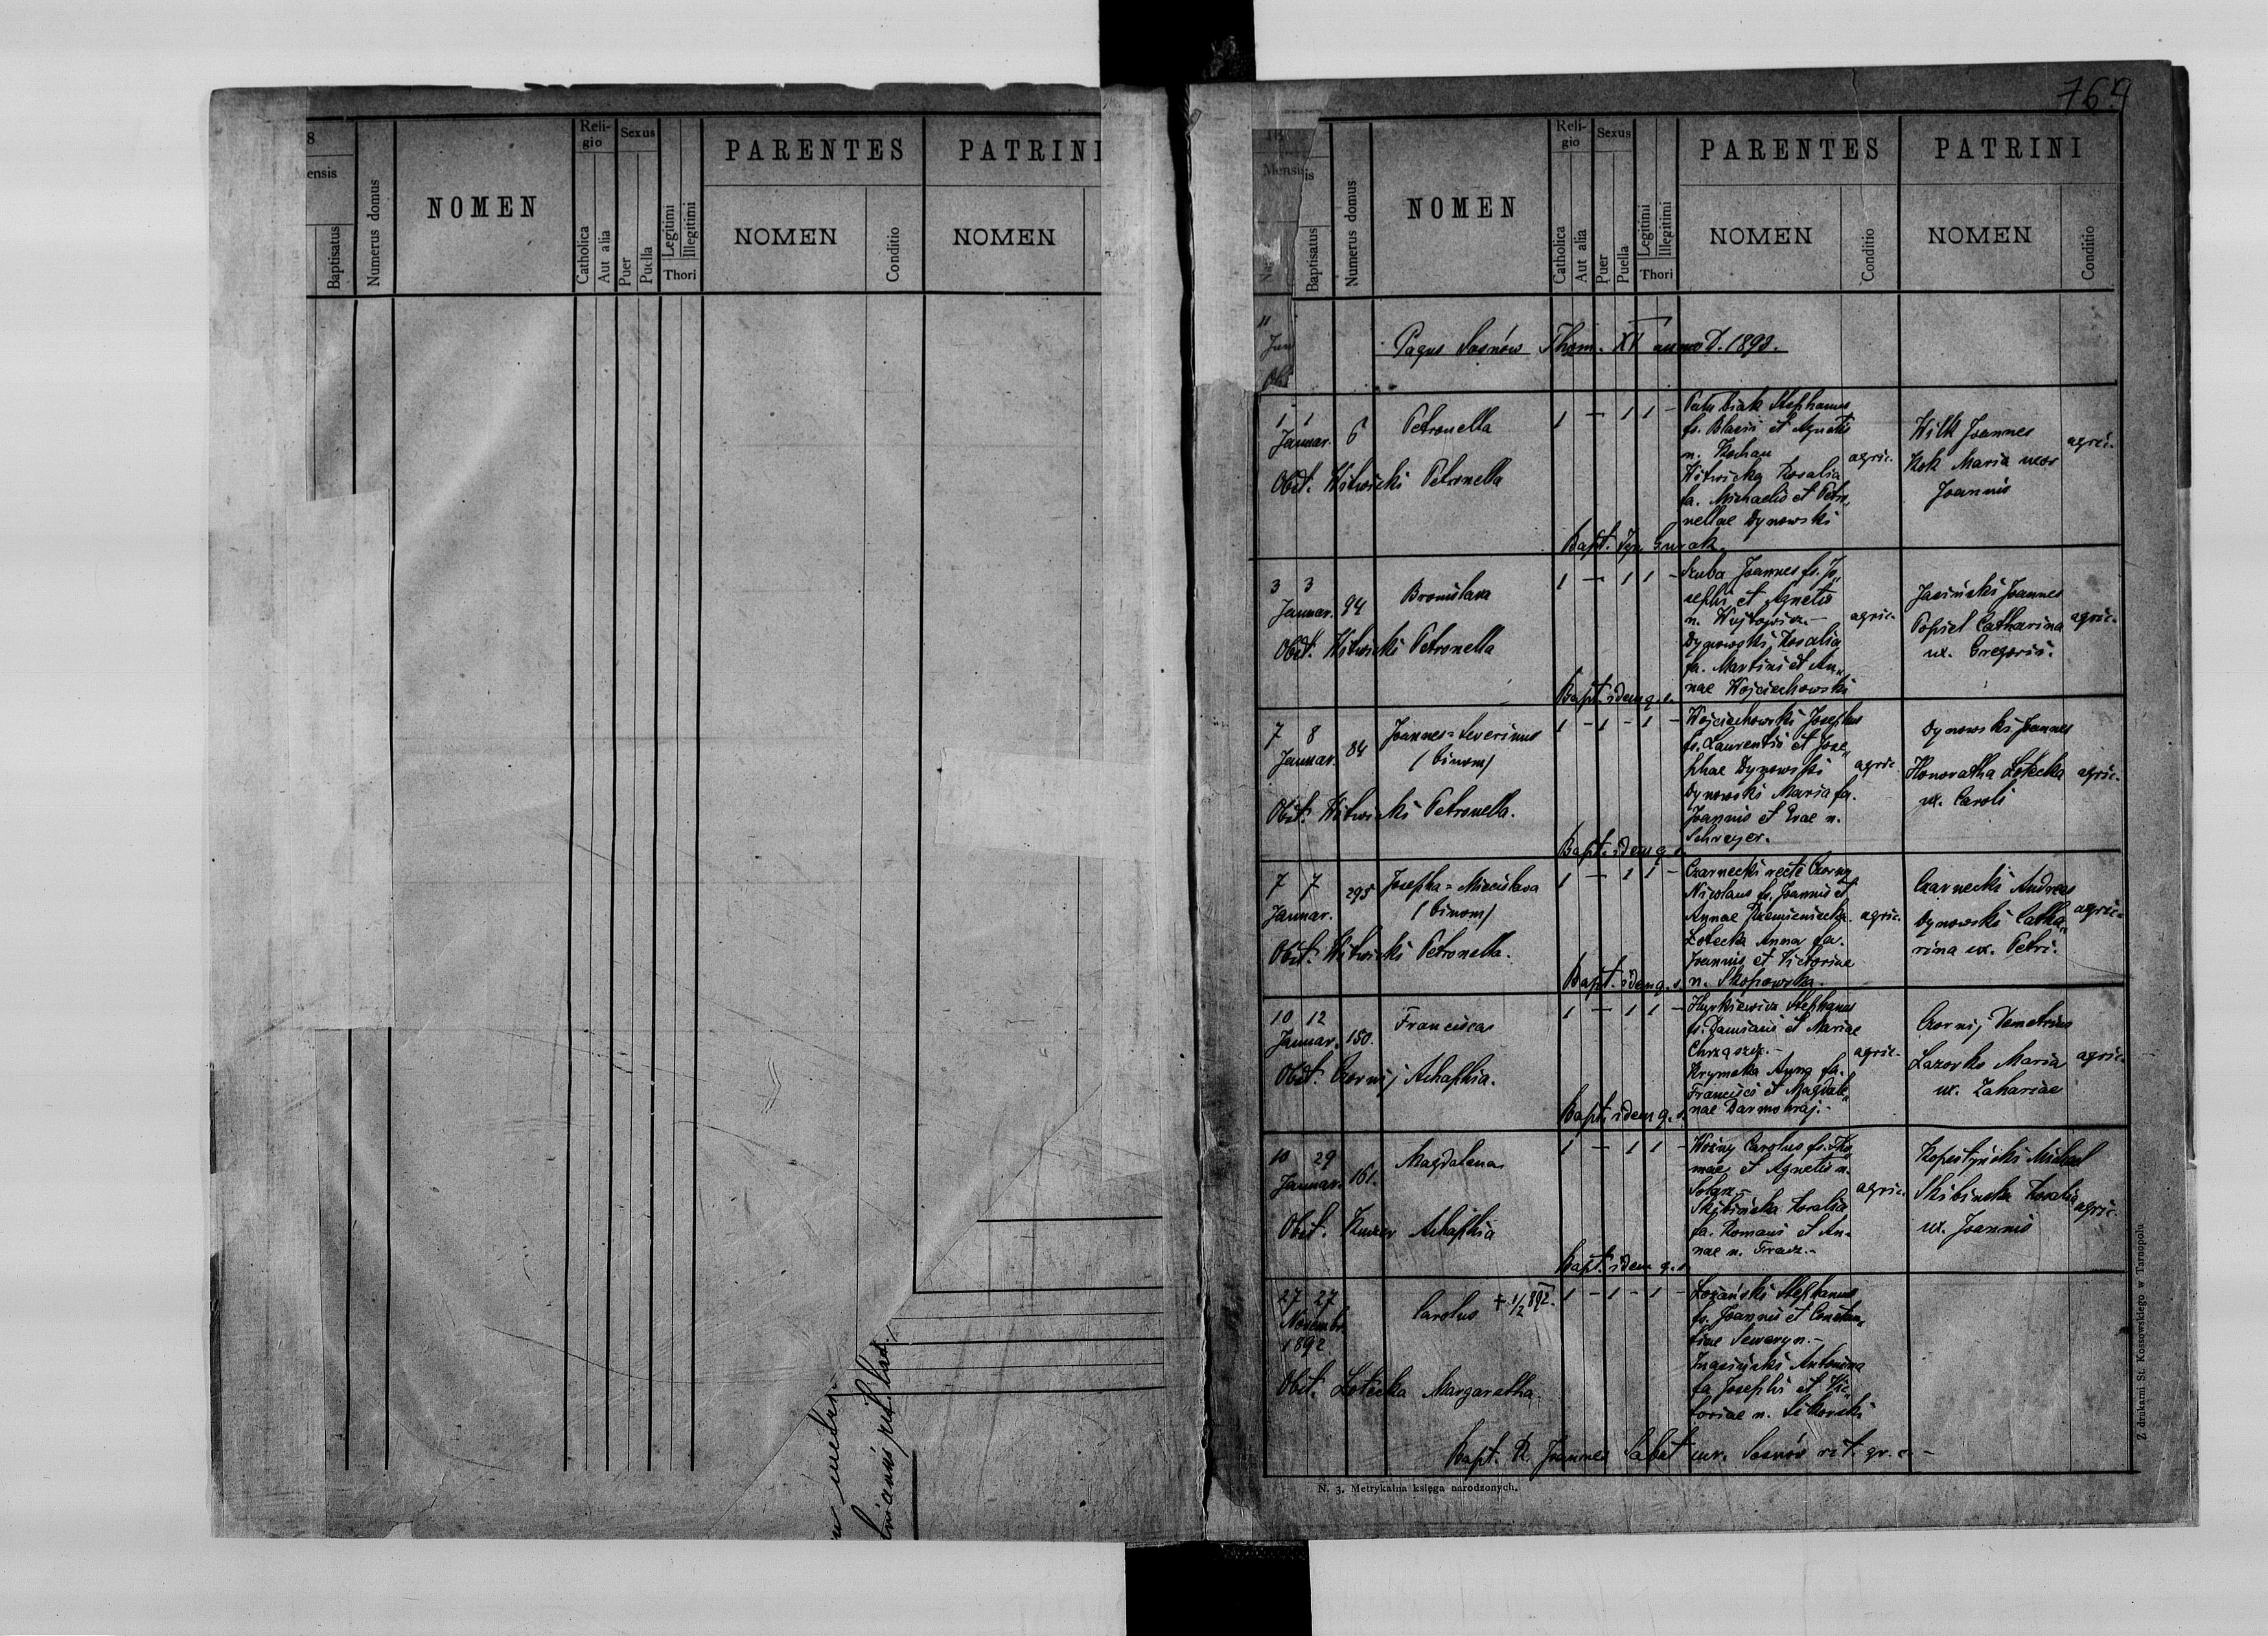 8
ensis
Baptisatus
Numerus domus
NOMEN
Reli-
gio
Catholica
Aut alia
Sexus
Puer
Puella
Legitimi
Illegitimi
Thori
PARENTES
NOMEN
Conditio
PATRINI
NOMEN
764
Mensis
Baptisatus
Numerus domus
NOMEN
Reli-
gio
Catholica
Aut alia
Sexus
Puer
Puella
Legitimi
Illegitimi
Thori
PARENTES
NOMEN
Conditio
PATRINI
NOMEN
Conditio
Pagus Sosnów Thom. XI anno D. 1893.
1 1
Januar. 6 Petronella
1 – 1 1 –
Stephanus
fs. Blasii et Agnetis
n. Kochan
Witwicka Rosalia
fa. Michaelis et Petro„
nellae Dynowski
agric.
Wilk Joannes
Kok Maria uxor
Joannis
agric.
Obst. Witwicki Petronella
Bapt. Ign. Gurak.
3 3
Januar. 94 Bronislava
1 – 1 1 –
Szuba Joannes fs. Jo„
sephi et Agnetis
n. Wojtowicz.–
Dynowski Rosalia
fa. Martini et An„
nae Wojciechowski
agric.
Jasiński Joannes
Popiel Catharina
ux. Gregorii.
agric.
Obst. Witwicki Petronella
Bapt. idem q. s.
7 8
Januar. 84 Joannes=Severinus
(binom)
1 – 1 – 1 –
Wojciechowski Josephus
fs. Laurentii et Jose„
phae Dynowski
Dynowski Maria fa.
Joannis et Evae n.
Schreyer.
agric.
Dynowski Joannes
Honoratha Łotecka
ux. Caroli
agric.
Obst. Witwicki Petronella.
Bapt. idem q. s.
7 7
Januar. 295 Josepha=Miecislava
(binom)
1 – 1 1 –
Czarnecki recte Czorny
Nicolaus fs. Joannis et
Annae
Łotecka Anna fa.
Joannis et Victoriae
n. Skopowska.
agric.
Czarnecki Andreas
Dynowski Catha„
rina ux. Petri.
agric.
Obst. Witwicki Petronella.
Bapt. idem q. s.
10 12
Januar. 150. Francisca
1 – 1 1 –
Stephanus
fs. Damiani et Mariae
Chrząszcz.–
Krymska Anna fa.
Francisci et Magdale„
nae Darmohraj.–
agric.
Czornij Demetrius
Łazorko Maria
ux. Zahariae
agric.
Obst. Czornij Achaphia.
Bapt. idem q. s.
10 29
Januar. 161. Magdalena
1 – 1 1 –
Woźny Carolus fs. Tho
mae et Agnetis n.
Skibińska Rosalia
fa. Romani et An-
nae n.
agric.
Kopestyński Michael
Skibinska Rosalia
ux. Joannis
agric.
Obst. Achaphia
Bapt. idem q. s.
27 27
Novembr.
1892 Carolus † 1/2 892.
1 – 1 – 1 –
Łozański Stephanus
fs. Joannis et Constan„
tiae Seweryn.–
Antonina
fa Josephi et Vic„
toriae n. Sikorski
Obst. Łotecka Margaretha.
Bapt. R. Joannes Sabat Sosnów rit. gr. c.–
N. 3. Metrykalna księga narodzonych.
Z drukarni St. Kossowskiego w Tarnopolu